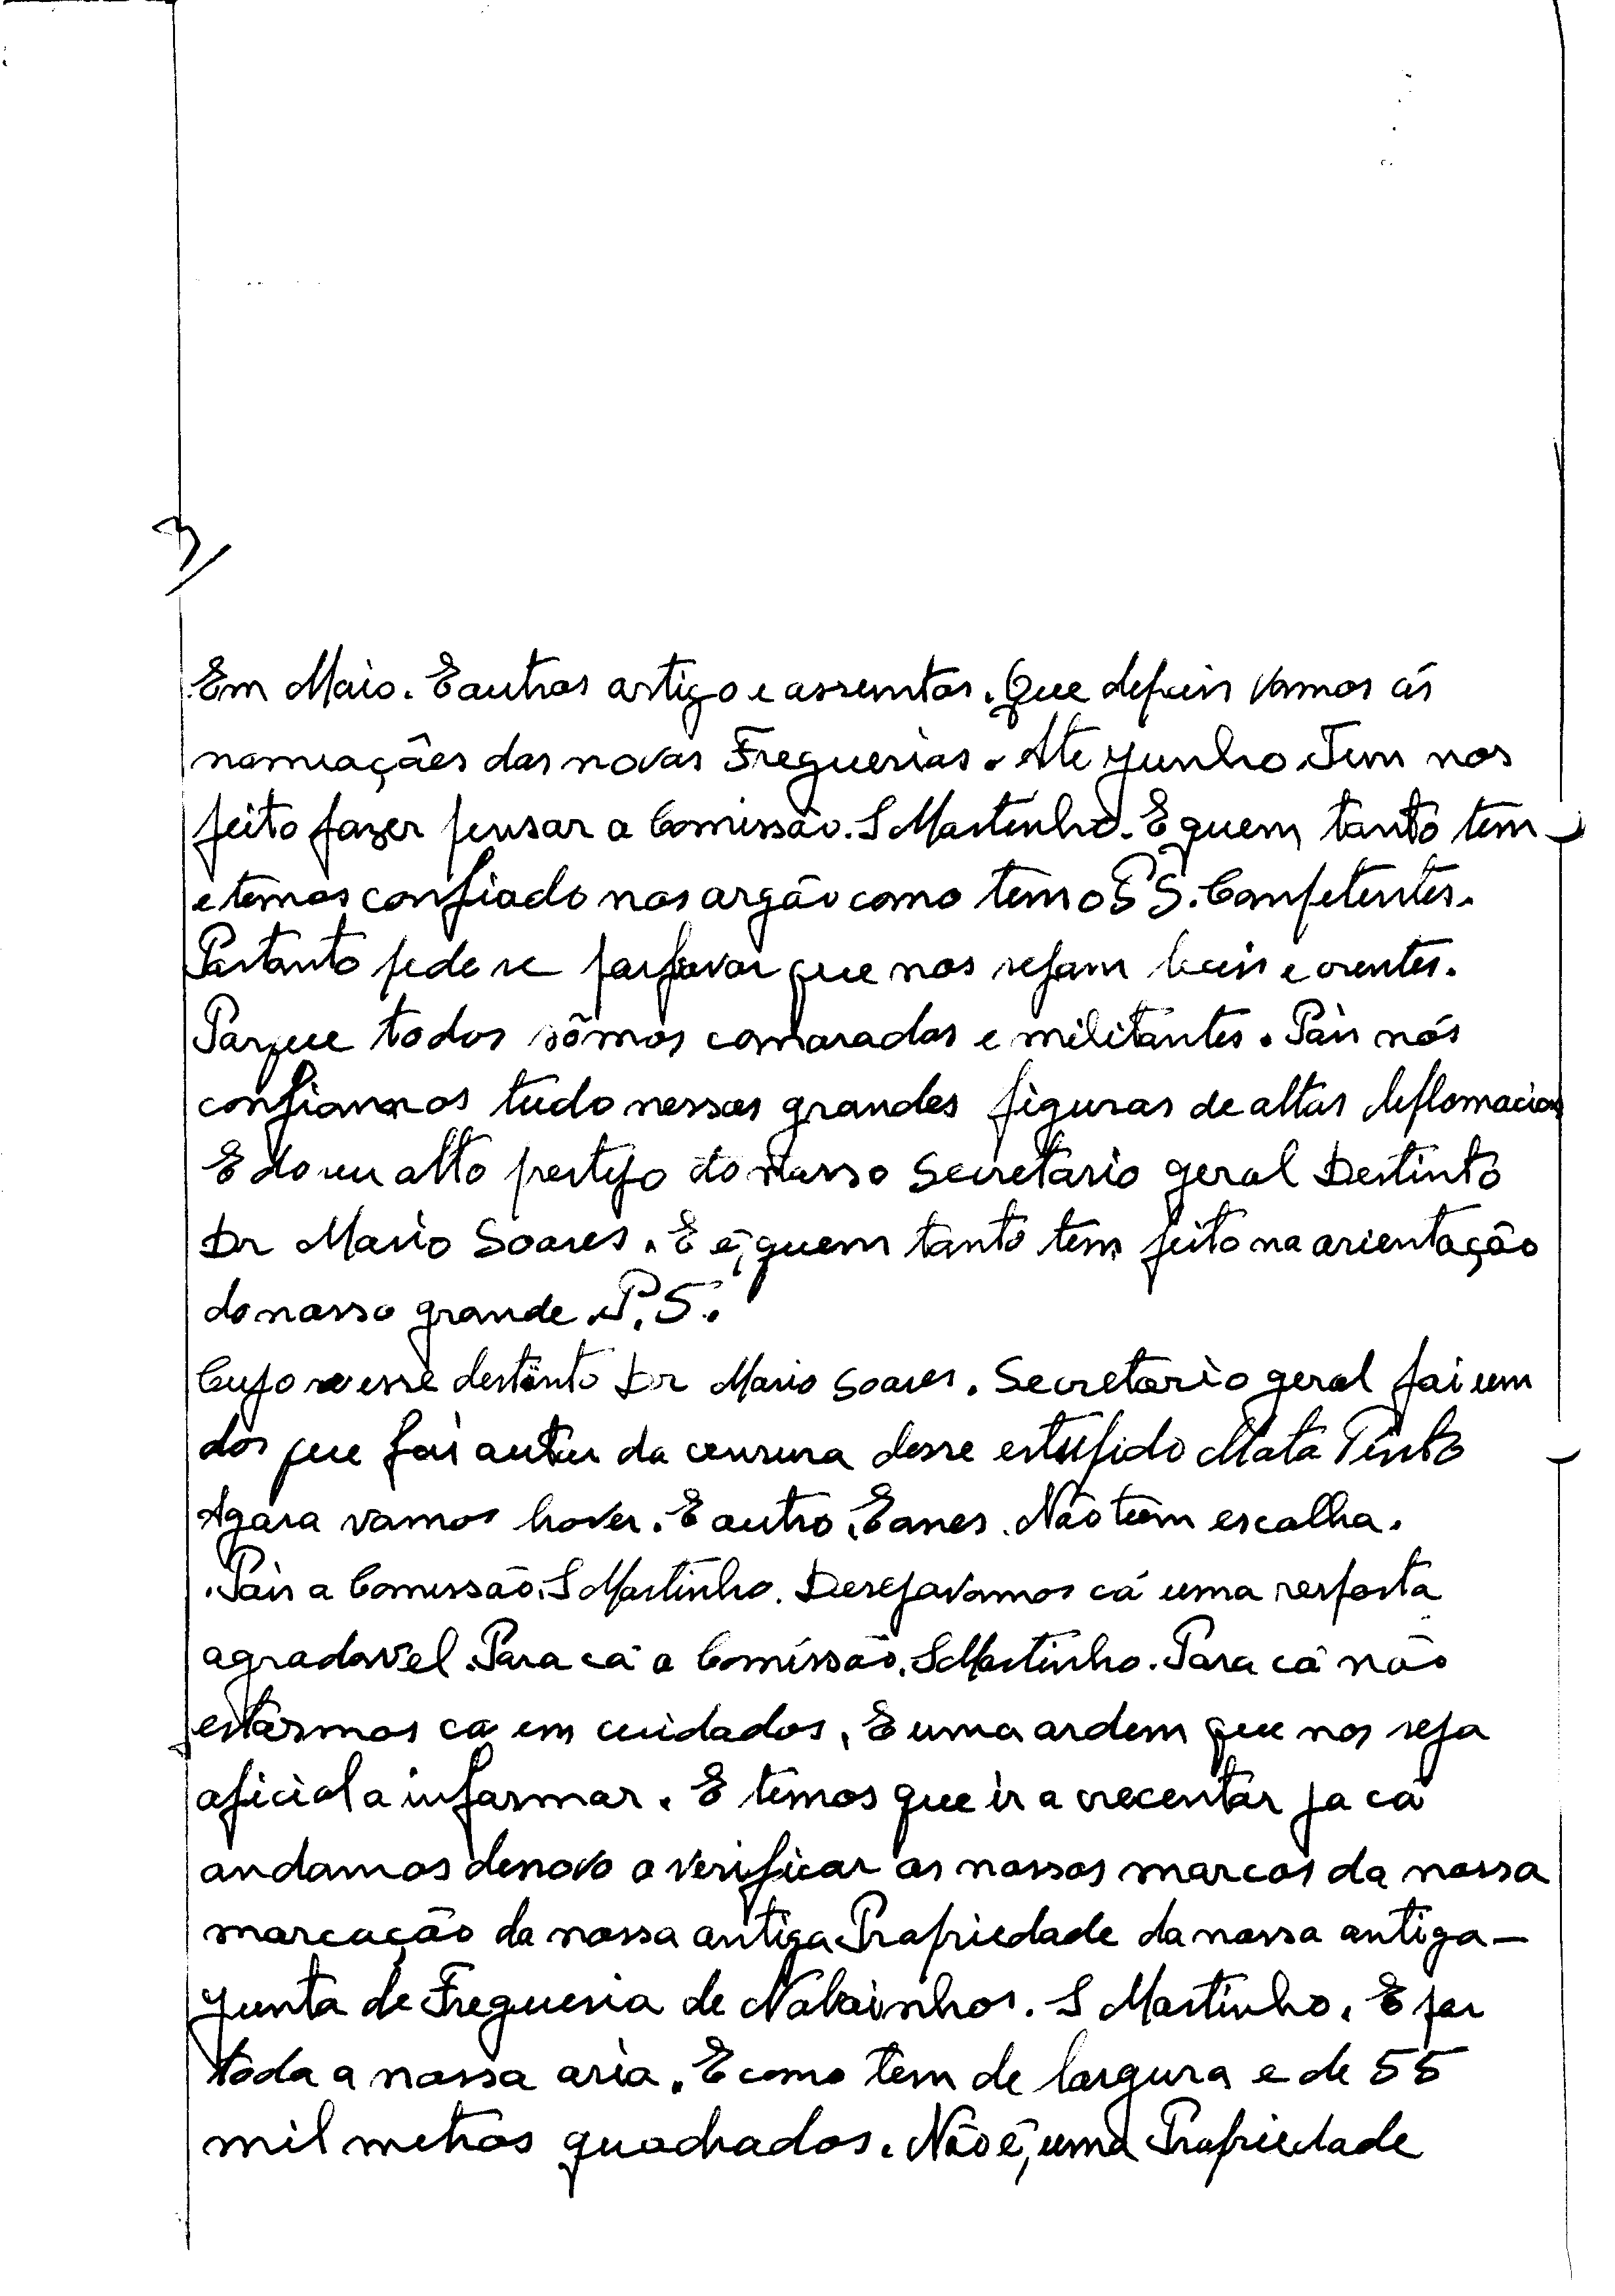 3/
Em Maio. E autros artigo e assuntos. Que depois vamos ás
nomiações das novas Freguerias. Ate Junho Tem nos
feito fazer pensar a Comissão. S Martinho. E quem tanto tem
e temos confiado nos argão como tem o PS. Competentes.
Portanto pede se por favor que nos sejam leais e crentes.
Porque todos sômos camaradas e militantes. Pois nós
confiamos tudo nessas grandes figuras de altas deplomacias
E do seu alto prestijo do nosso Secretario geral Destinto
Dr Mario Soares. E é, quem tanto tem feito na orientação
do nosso grande P.S.
Cujo esse destinto Dr Mario Soares. Secretario geral foi um
dos que foi autor da censura desse estupido Mata Pinto
Agora vamos hover. E autro, Eanes. Não tem escalha.
Pois a Comissão, S Martinho. Desejavamos cá uma resposta
agradavel. Para cá a Comissão, S Martinho. Para cá não
estármos cá em cuidados, E uma ordem que nos seja
oficial a informar. E têmos que ir a crecentar ja cá
andamos denovo a verificar os nossos marcos da nossa
marcação da nossa antiga Propriedade da nossa antiga -
Junta de Fregueria de Nabainhos. S Martinho. E por
toda a nossa aria. E como tem de largura e de 55
mil metros quadrados. Não é, uma Propriedade